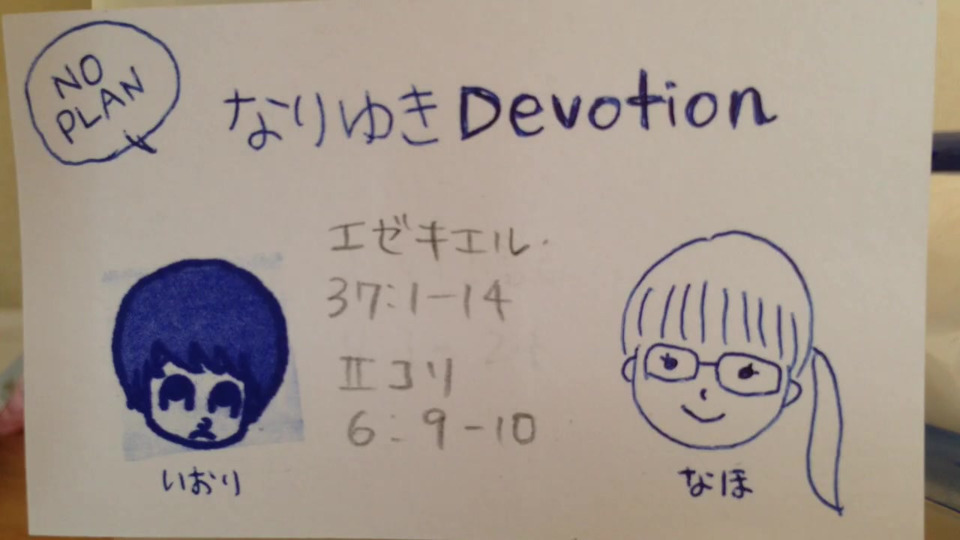 NO
PLAN
なりゆきDevotion
エゼキエル.
37:1-14
IIコリ
6:9-10
いおり
なほ